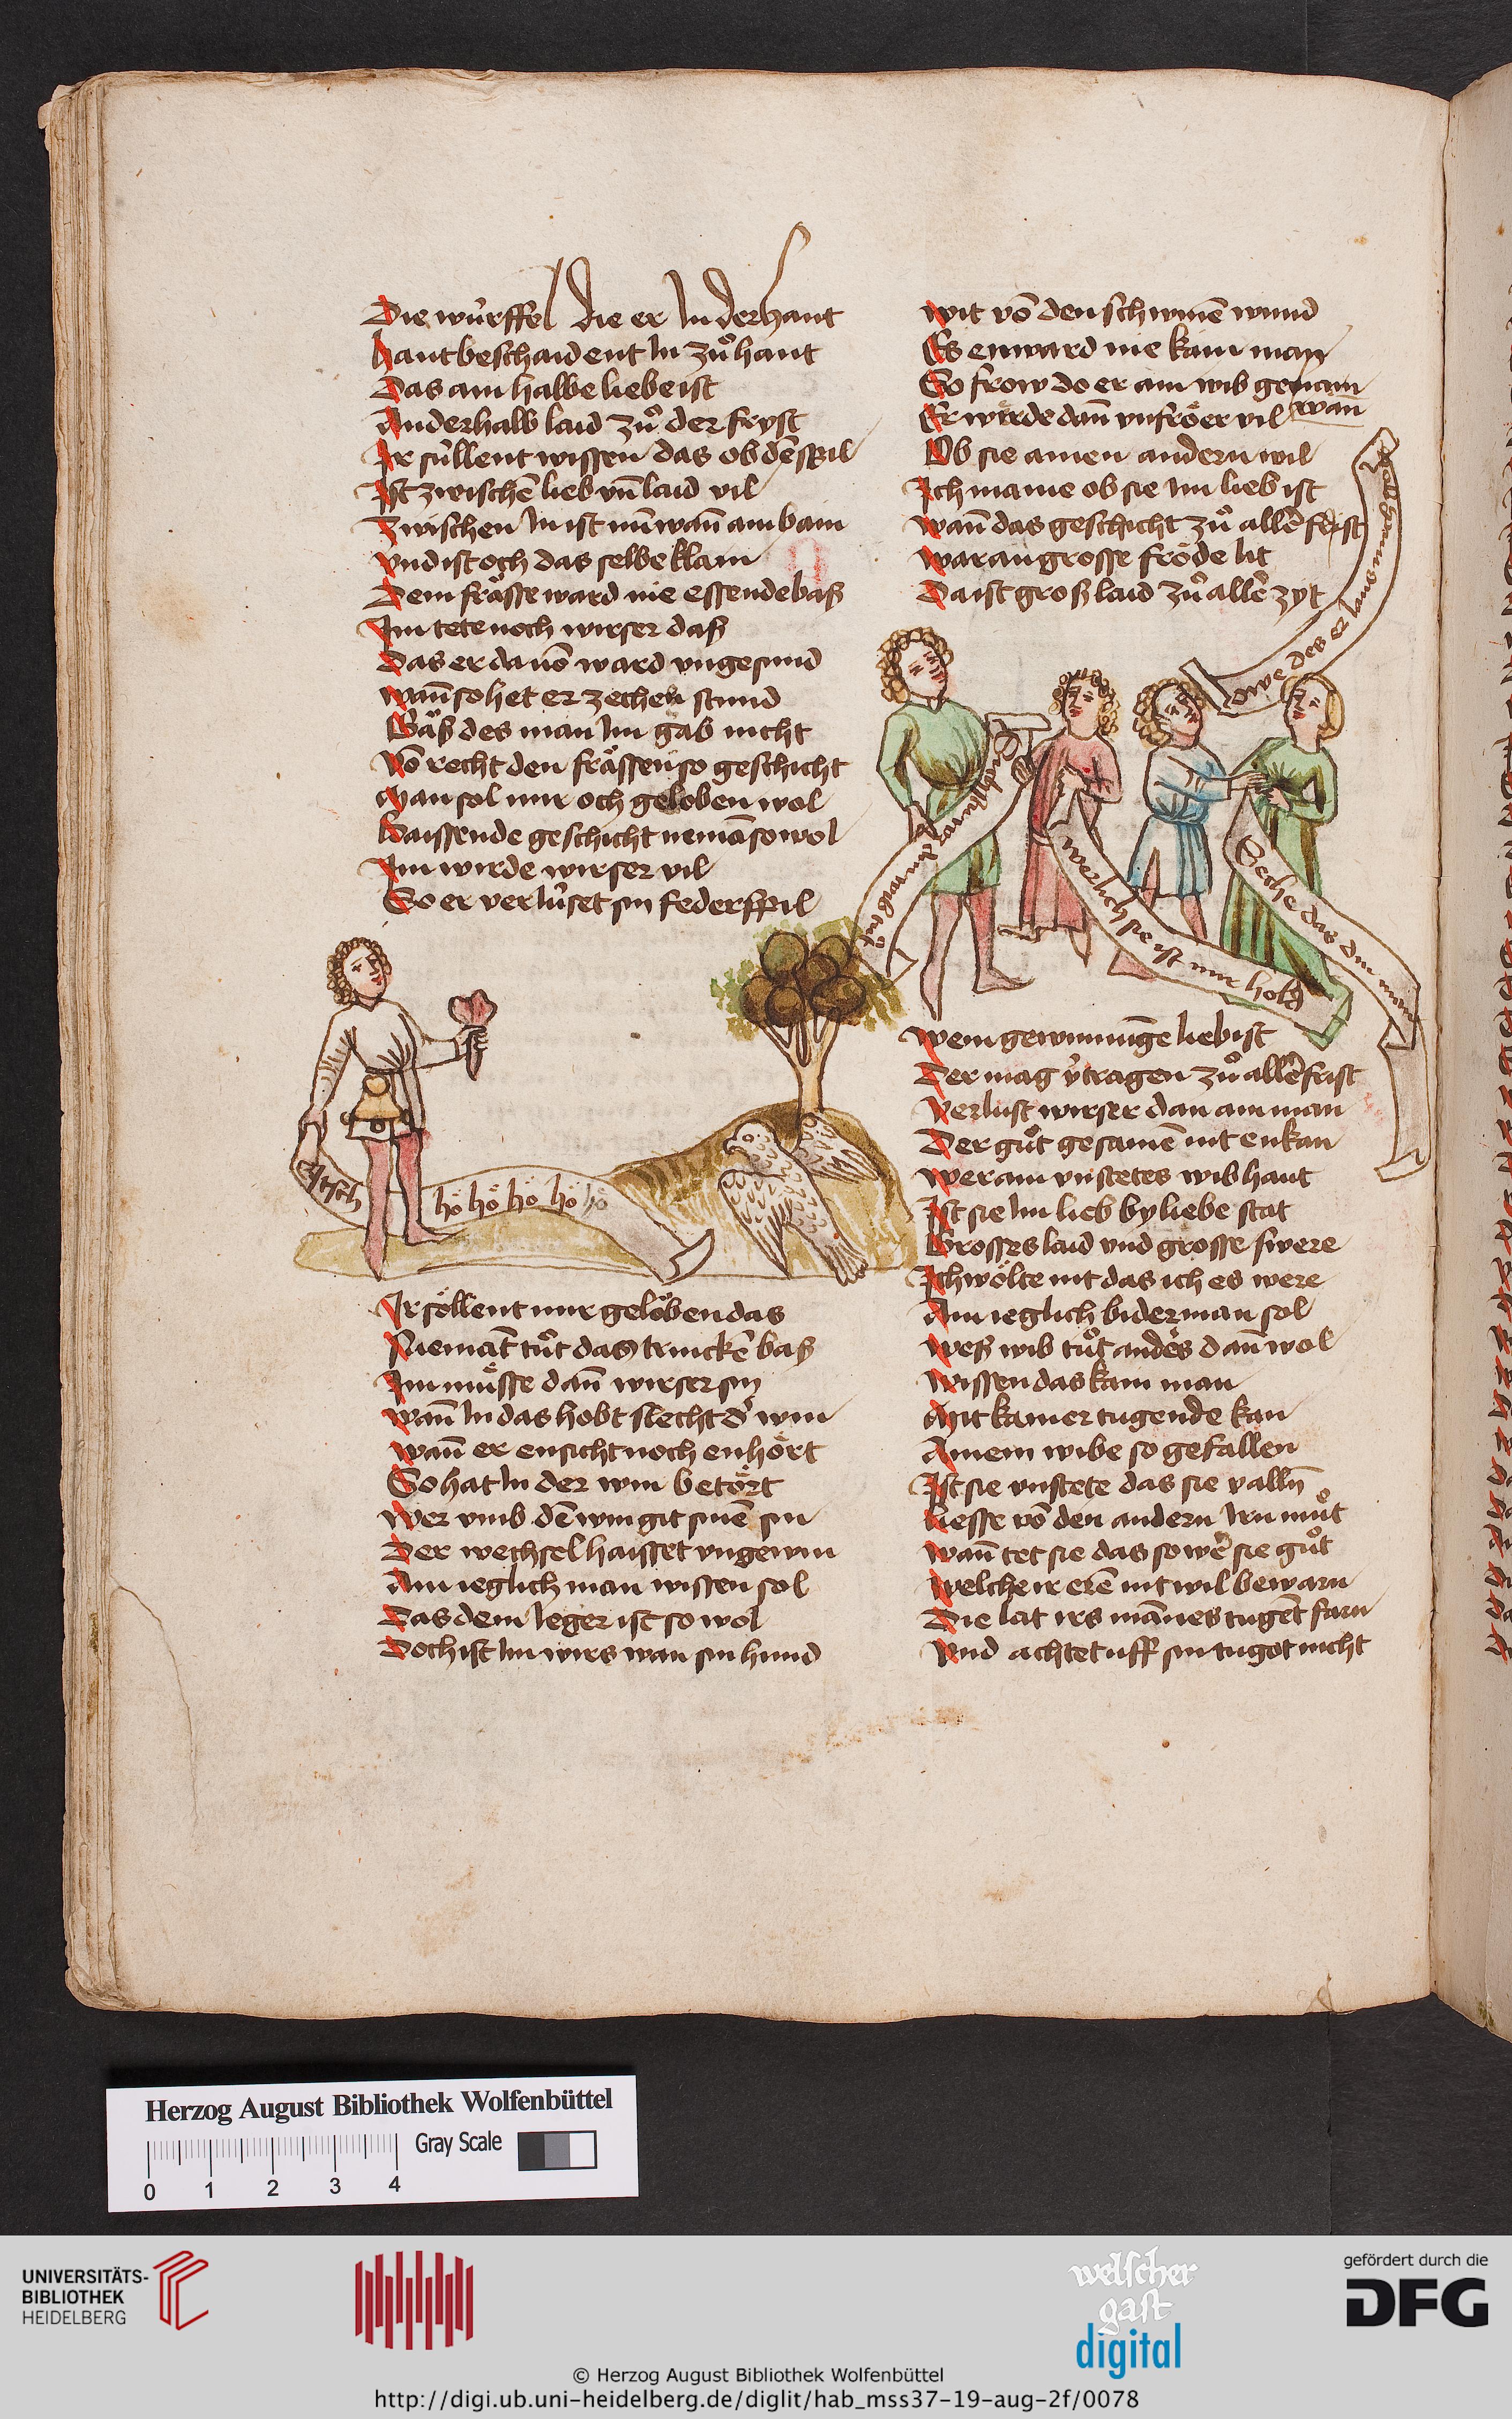 Die wùrffel die er In der hant
hant beschaident In zuͦ hant
Das ain halbe liebe ist
Anderhalb laid zuͦ der fryst
Ir sùllent wissen das ob dē spil
Ist zwischē lieb vn̄ laid vil
Zwischen In ist nun̄ wan̄ ain bain
vnd ist och das selbe klain
Dem frässe ward nie essende baß
Im tete noch wirser daß
Das er dauō ward vngesund
wan̄ so het er zechen stund
Gäß des man Im gab nicht
Vō recht den frässen so geschicht
Man sol mir och geloben wol
Baissende geschicht nemā so wol
Im wirde wirser vil
So er verlùset sin federspil
hö hö hö hö hö
Ir söllent mir gelöben das
Niemāt tuͦt das trinckē baß
Im müsse dan̄ wirser sin
wan̄ In das hobt slecht d' win
wan̄ er ensicht noch enhört
So hat In der win betört
Wer vmb dē win git sinē sin
Der wechsel haisset vngewin
Ain ieglich man wissen sol
Das dem Ieger ist so wol
Doch ist Im wirs wan sin hund
wit vō den schwinē wund
Es enward nie kain man
So frow do er ain wib genam
Er wirde dan̄ vnfröer vil wān
Ob sie ainen andern wil
Ich maine ob sie Im lieb ist
wan̄ das geschicht zuͦ allē frist
war an grosse fröde lit
Da ist groß laid zuͦ allē zyt
owe des er
werlich sie ist mir hold
Seche das din man
wem gewinnūge lieb ist
Der mag v̓tragen zuͦ allē frist
Verlust wirser dan ain man
Der guͦt gesamē nit enkan
wer ain vnstetes wib hant
Ist sie Im lieb by liebe stat
Grosses laid vnd grosse swere
Ich wölte nit das ich es were
Ain ieglich biderman sol
weß wib tuͦt andēs dan̄ wol
wissen das kain man
Mit kainer tugende kan
Ainem wibe so gefallen
Ist sie vnstete das sie valln̄
Liesse vō den andern Irn muͦt
wan̄ tet sie das so wē sie guͦt
Welche ir erē nit wil bewarn
Die lat irs mānes tugēt farn
Vnd achtet uff sin tugot nicht
Herzog August Bibliothek Wolfenbüttel
Gray Scale
0 1 2 3 4
UNIVERSITÄTS-
BIBLIOTHEK
HEIDELBERG
welscher
gast
digital
gefördert durch die
DFG
© Herzog August Bibliothek Wolfenbüttel
http://digi.ub.uni-heidelberg.de/diglit/hab_mss37-19-aug-2f/0078